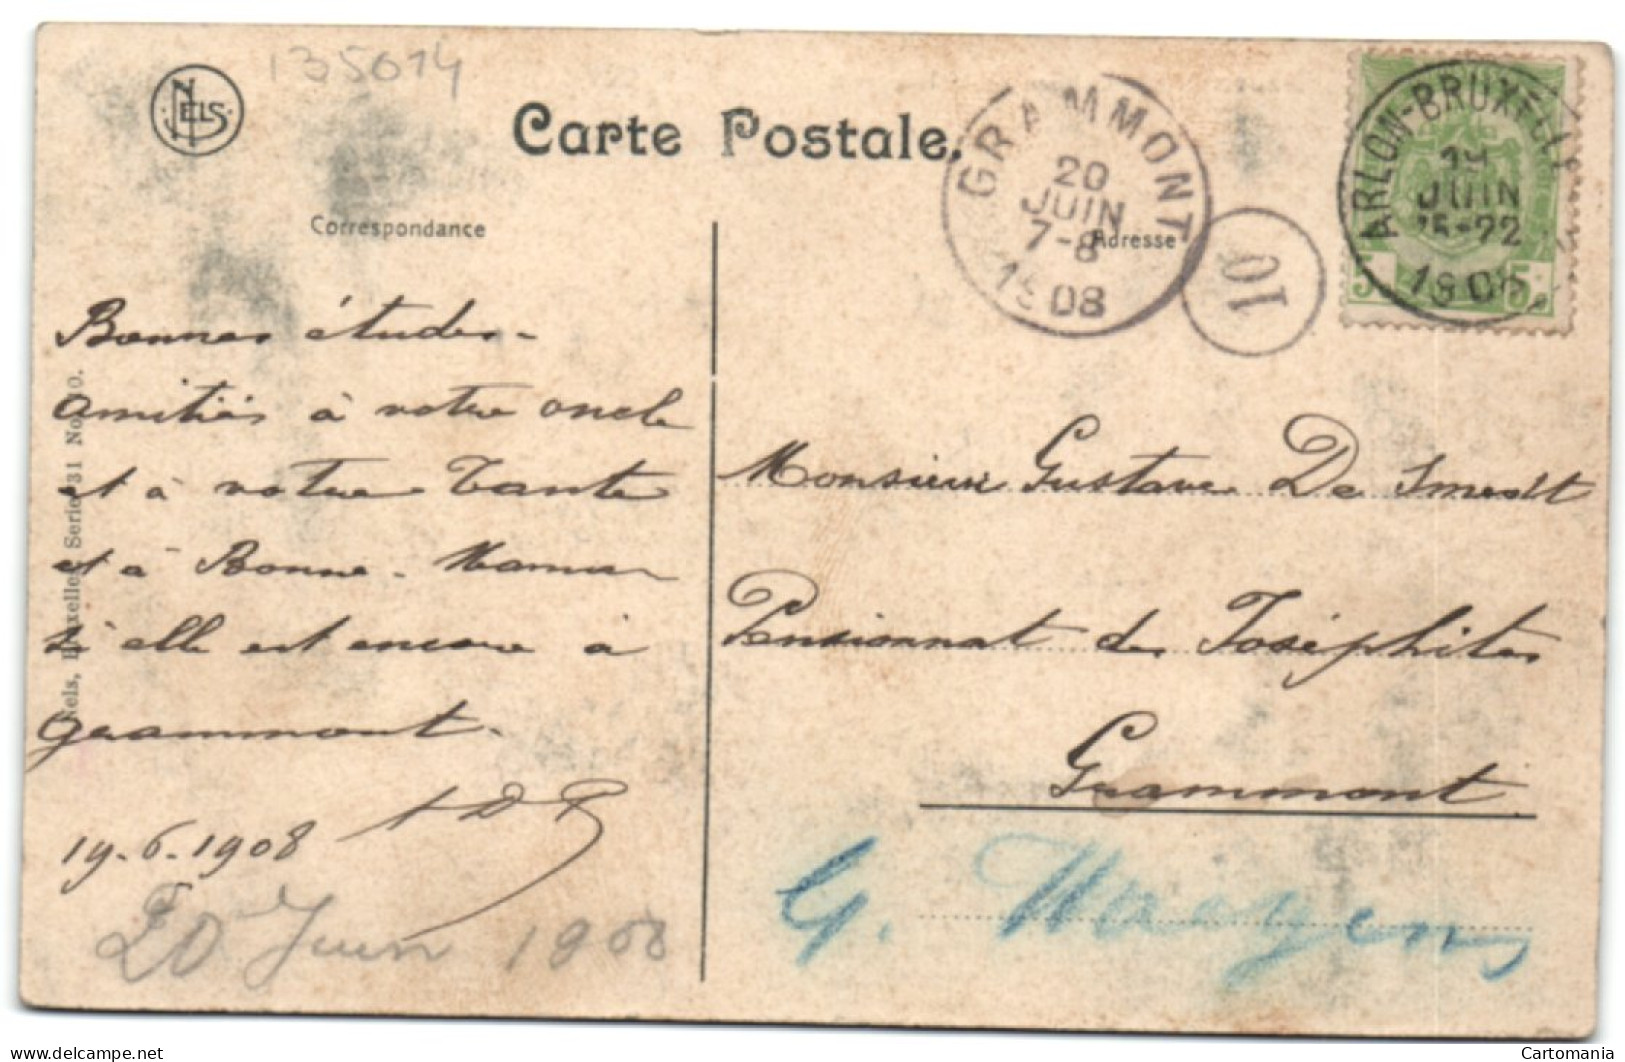 135614
NELS
Carte Postale.
GRAMMONT
20
JUIN
7-8
1908
10
ARLON-BRUXELLES
19
JUIN
15-22
1908
5
5
Correspondance
Adresse
Bonnes études -
amitiés à votre oncle
et à votre Tante
et à Bonne-Maman
si elle est encore à
Grammont.
19.6.1908
20 Juin 1908
Nels, Bruxelles Serie 31 No 10.
Monsieur Gustave De Smedt
Pensionnat des Joséphites
Grammont
G.
delcampe.net
Cartomania